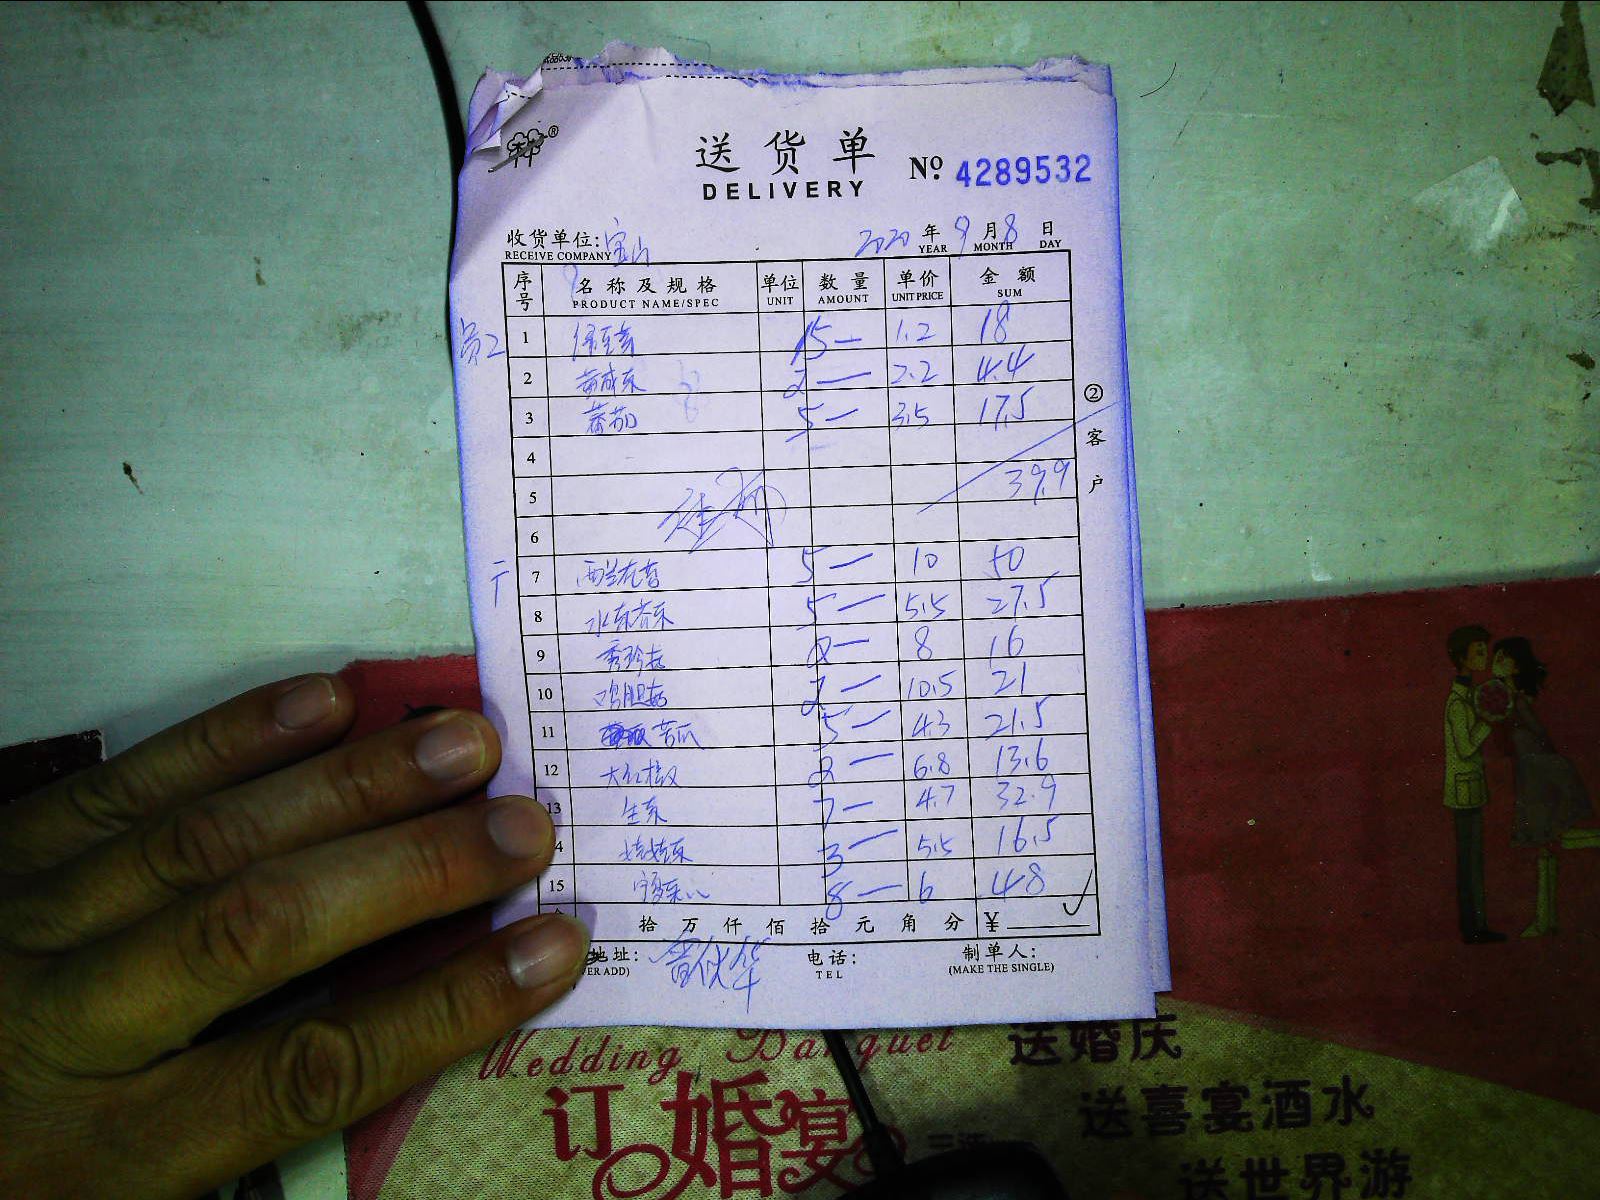 送货单
DELIVERY
№ 4289532
收货单位: 宝山
RECEIVE COMPANY
2020 年 9 月 8 日
YEAR MONTH DAY
序号 名称及规格 单位 数量 单价 金额
PRODUCT NAME/SPEC UNIT AMOUNT UNIT PRICE SUM
员工 1 15— 1.2 18
2 2— 2.2 4.4
3 蕃茄 5— 3.5 17.5
4
5 39.9
6
7 西兰花苔 5— 10 50
8 水东芥菜 5— 5.5 27.5
9 秀珍菇 2— 8 16
10 鸡腿菇 2— 10.5 21
11 苦瓜 5— 4.3 21.5
12 大红椒 2— 6.8 13.6
13 生菜 7— 4.7 32.9
14 娃娃菜 3— 5.5 16.5
15 8— 6 48
拾 万 仟 佰 拾 元 角 分 ¥
② 客户
地址: 电话: 制单人:
VER ADD) TEL (MAKE THE SINGLE)
Wedding Banquet
订婚宴
送婚庆
送喜宴酒水
送世界游